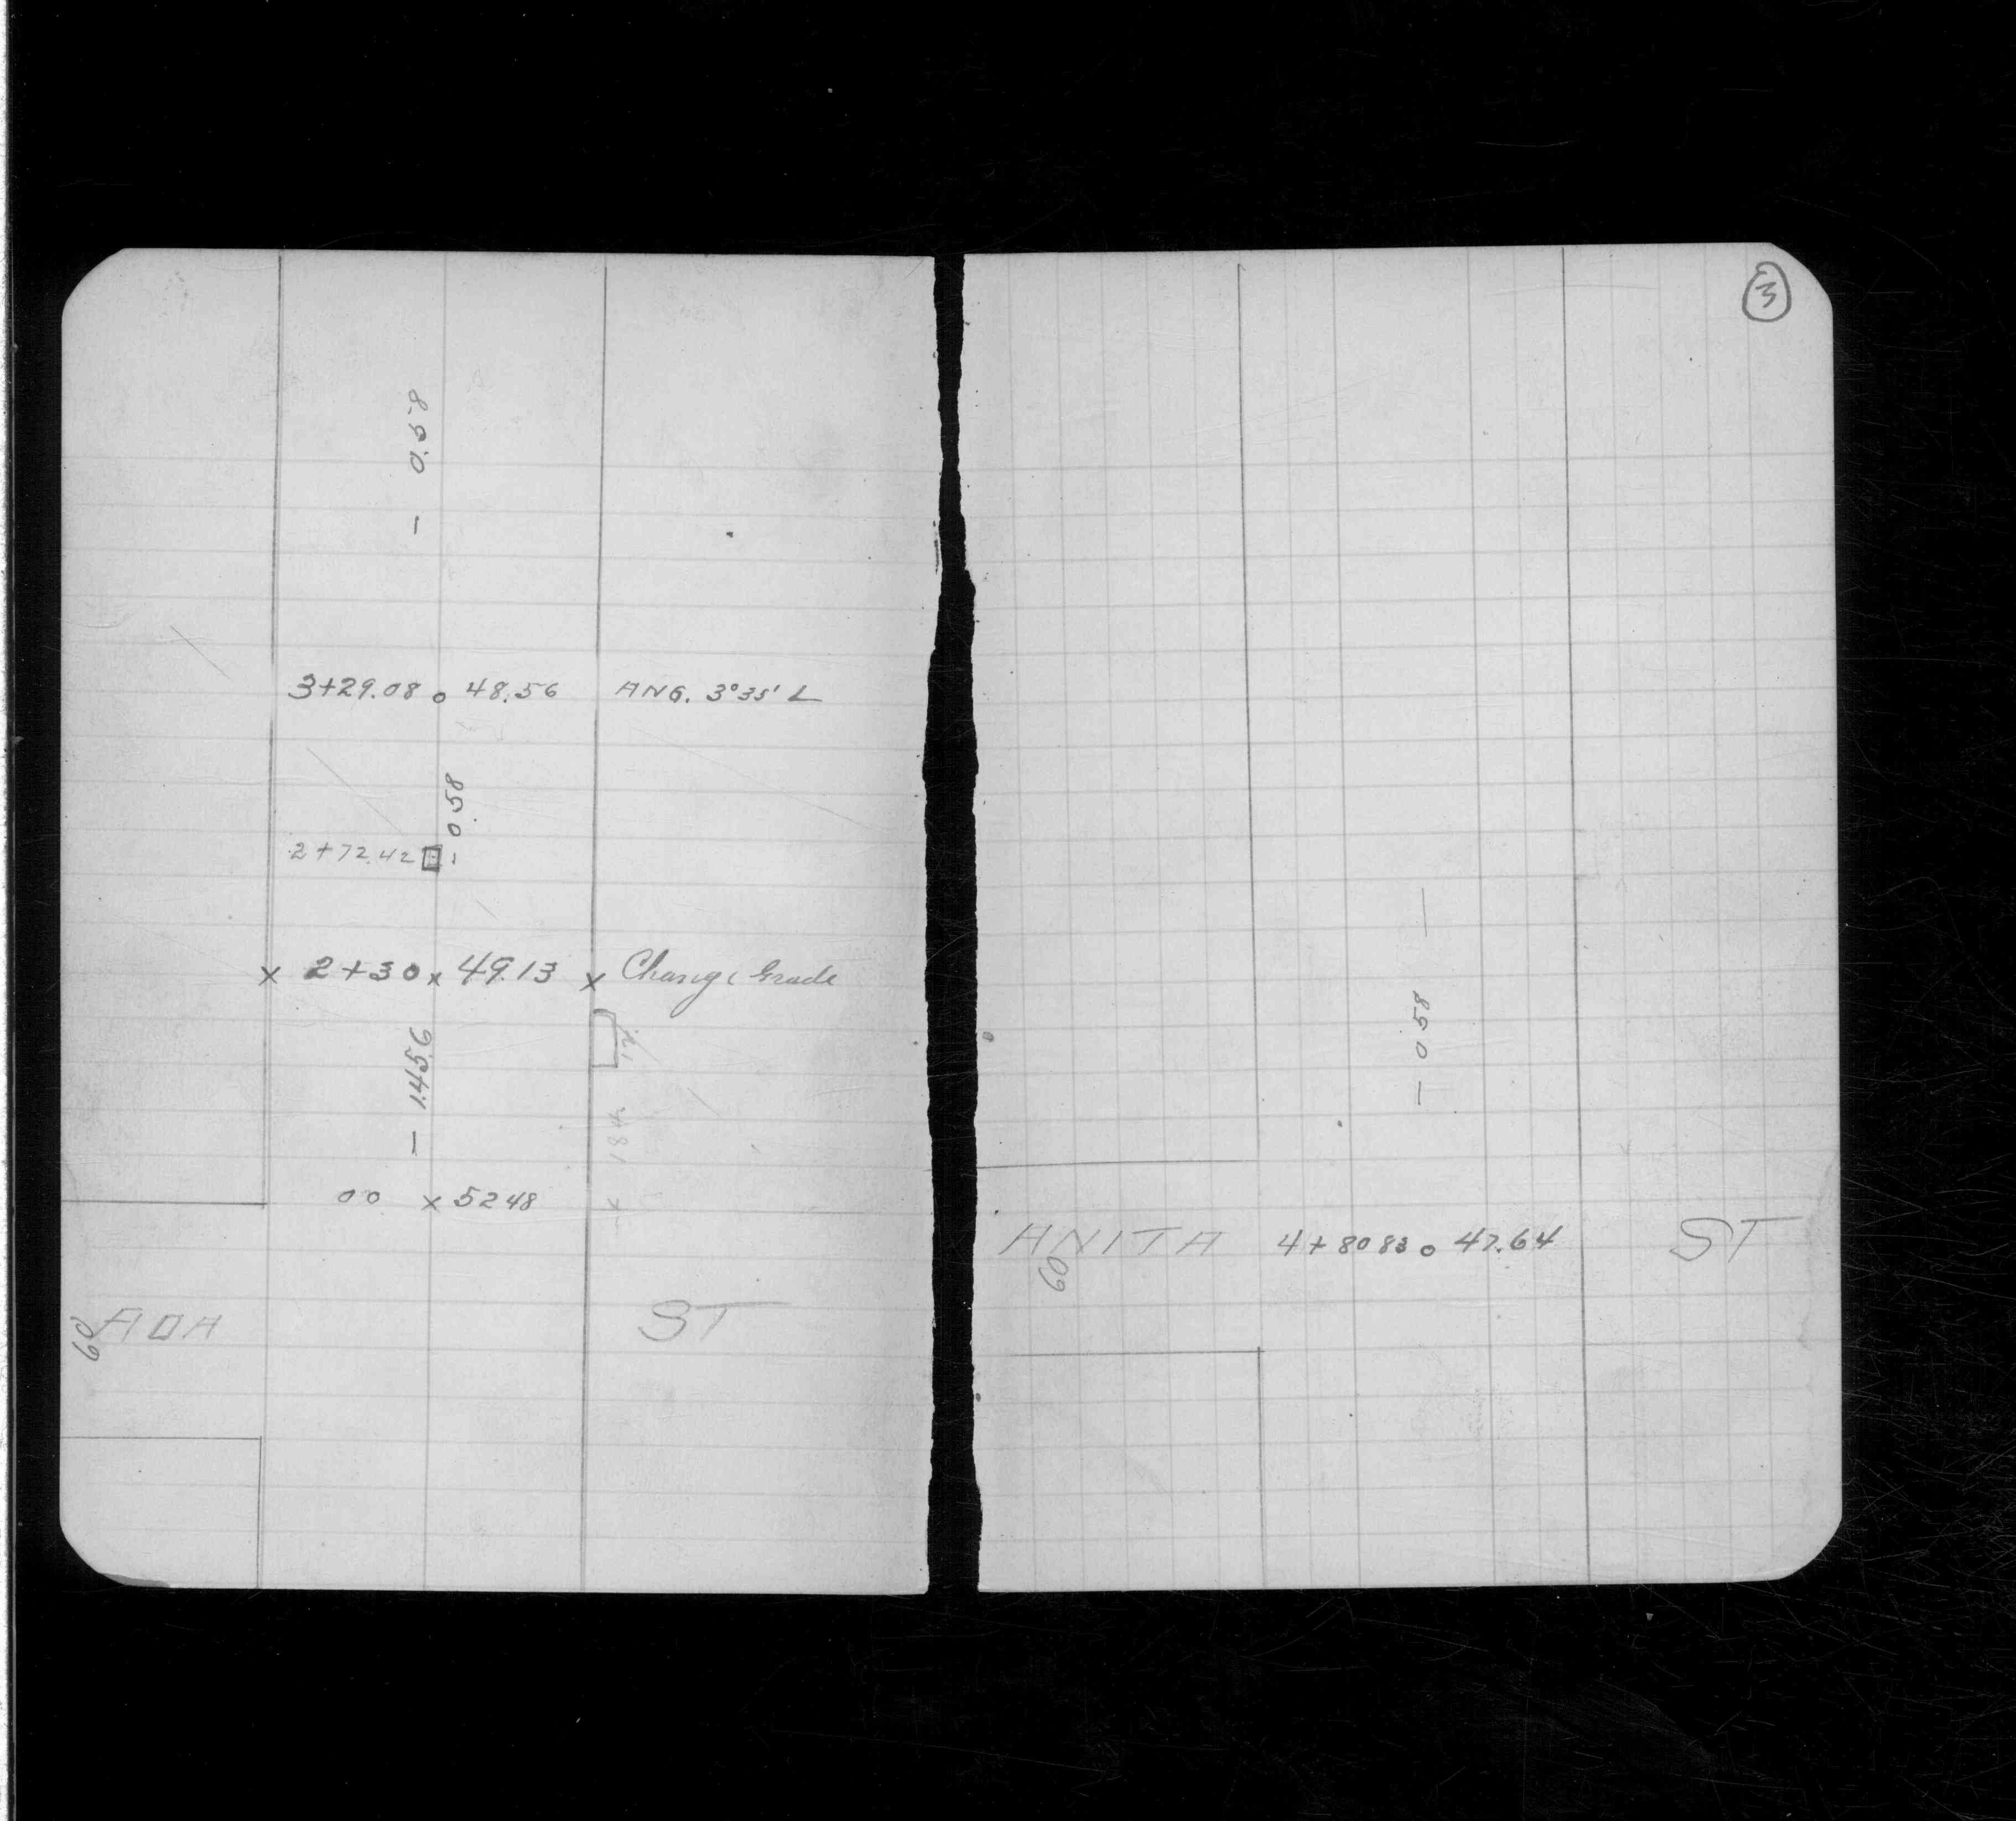 - 0.58
3+29.08 o 48.56 ANG. 3°35' L
- 0.58
2+72.42
x 2+30 x 49.13 x Change Grade
- 1.456
12
184
00 x 52 48
60 ADA ST
3
- 0 58 -
ANITA 4+80 83 o 47.64 ST
60